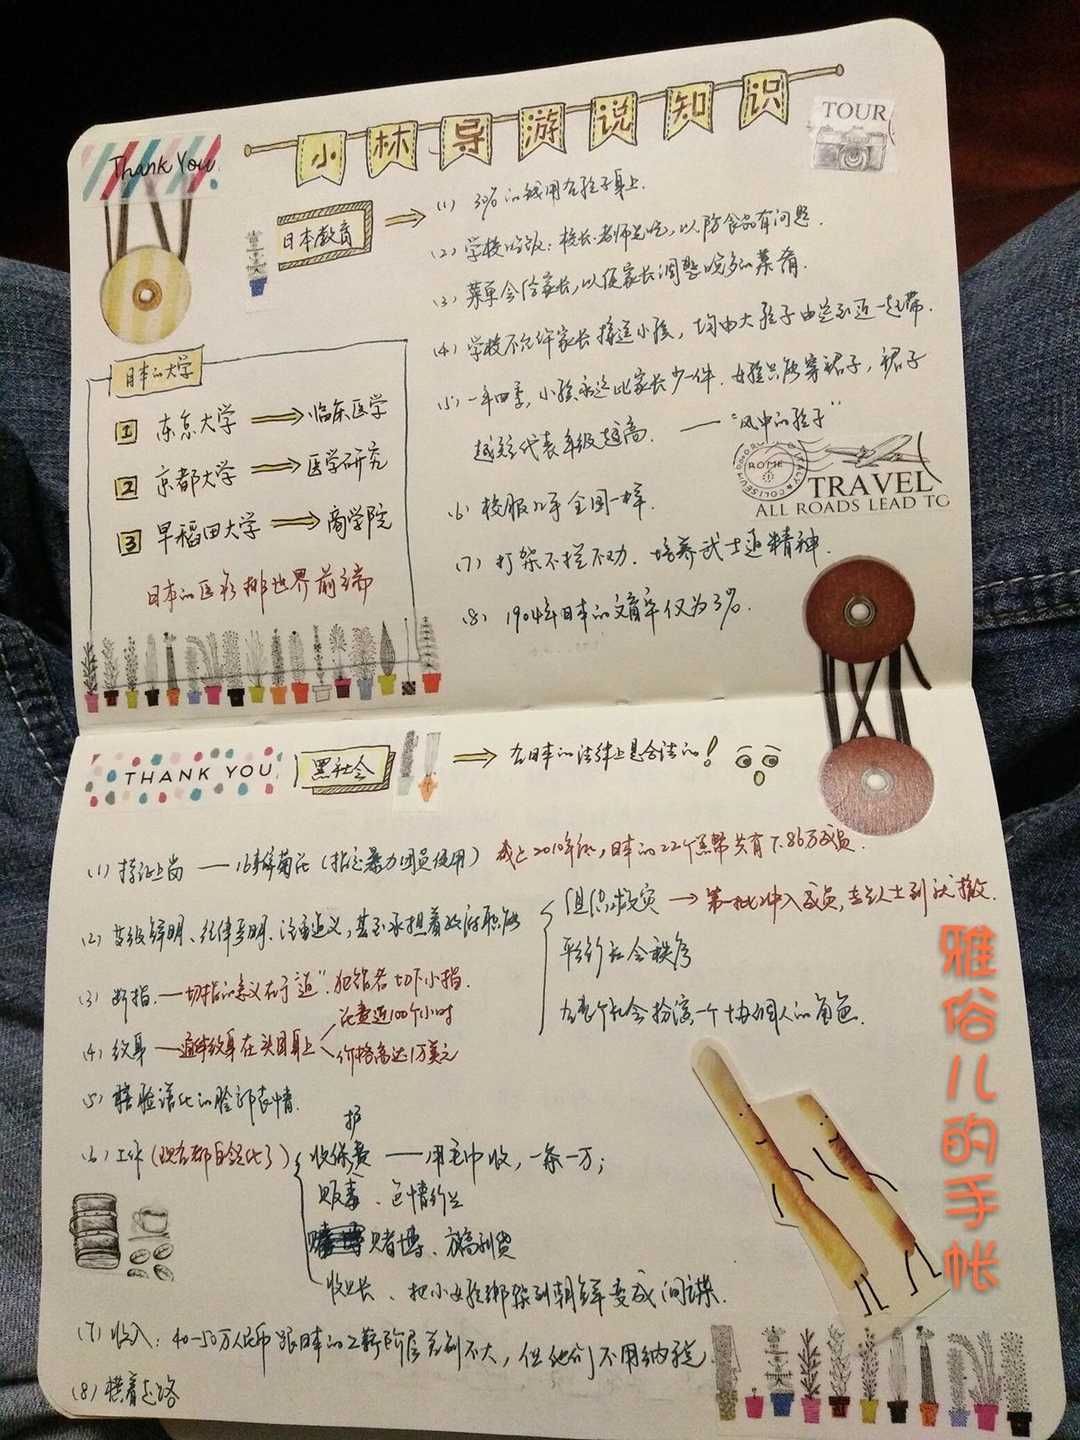 小林导游说知识
TOUR
Thank You
日本教育
(1) 3%的钱用在孩子身上.
(2) 学校吃饭：校长、老师先吃，以防食品有问题.
(3) 菜单会给家长，以便家长调整晚多的菜肴.
(4) 学校不允许家长接送小孩，均由大孩子由远到近一起带.
(5) 一年四季，小孩永远比家长少一件. 女孩只能穿裙子，裙子
越短代表年级越高. ——"风中的孩子"
(6) 校服几乎全国一样.
(7) 打架不拦不劝. 培养武士道精神.
(8) 1904年日本的文盲率仅为3%.
日本的大学
1 东京大学 临床医学
2 京都大学 医学研究
3 早稻田大学 商学院
日本的医疗排世界前端
ROME
TRAVEL
ALL ROADS LEAD TO
THANK YOU
黑社会
在日本的法律上是合法的！
(1) 持证上岗 —— 16瓣菊花 (指定暴力团员使用) 截止2010年底，日本的22个黑帮共有7.86万成员.
(2) 等级鲜明、纪律严明、注重道义，甚至承担着政府职能
组织救灾 → 第一批冲入成员，
平衡社会秩序
在整个社会扮演一个协调人的角色.
(3) 断指. — 切指的意义在于"道". 犯错者切下小指.
(4) 纹身 — 通体纹身在头目身上
花费近100个小时
价格高达1万美元
(5) 脸谱化的脸部表情.
(6) 工作 (现在都白领化了)
收保护费 —— 用毛巾收，一条一万；
贩毒、色情行业
赌博、放高利贷
把小女孩绑架到朝鲜变成间谍.
(7) 收入：40-50万人民币 跟日本的工薪阶层差别不大，但他们不用纳税
(8) 横着走路
雅俗儿的手帐